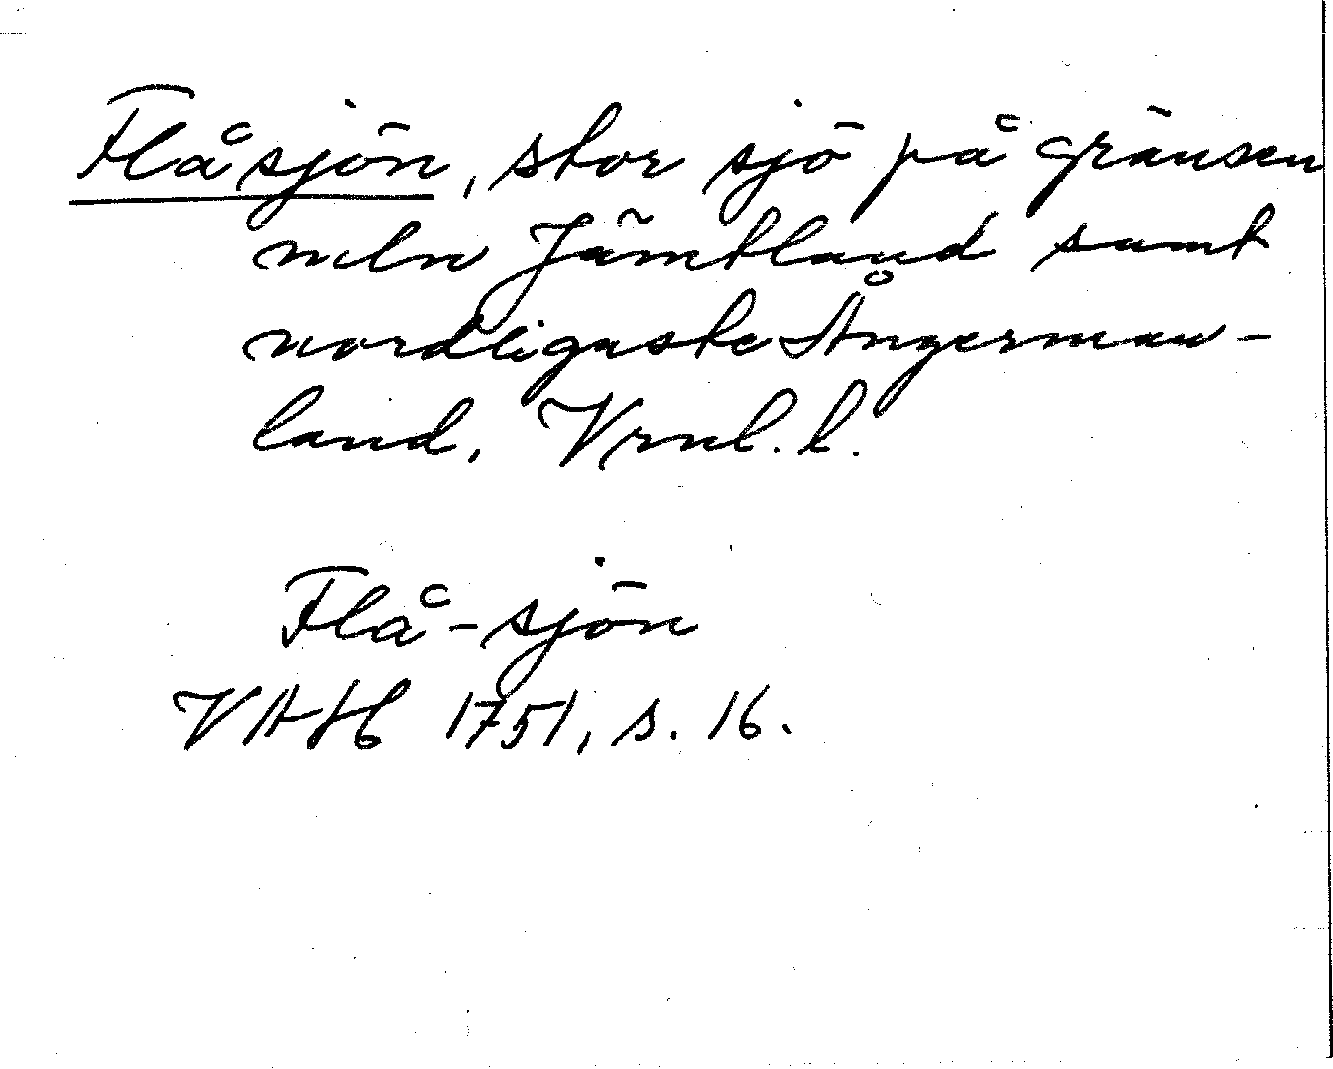 Flåsjön, stor sjö på gränsen
mln Jämtland samt
nordligaste Ångerman-
land, Vrnl. l.
Flå-sjön
VAH 1751, s. 16.